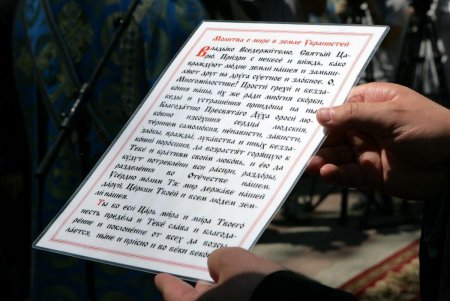 Молитва о мире в земле Украинстей
Владыко Вседержителю, Святый Ца-
рю, Призри с небесе и виждь, како
враждуют людие земли нашея и замыш-
ляют друг на друга суетное и забвное. О,
Многомилостиве! Прости грехи и безза-
кония наша, их же ради многия скорби,
беды и устроения приидоша на ны.
Благодатию Пресвятаго Духа ороси лю-
изсохшия сердца людския,
самолюбия, ненависти, зависти,
злобы, вражды, лукавства и иных безза-
коний да возрастят горящую к
Тебе и ближним своим любовь, и ею да
будут потреблени вси распри, раздоры,
разделения во Отечестве нашем.
Усердно молим Тя: мир державе нашей
даруй, Церкви Твоей и всем людем зем-
ли нашея.
Ты бо еси Царь мира и мира Твоего
несть предела и Тебе слава и благода-
рение и поклонение от всех да возсы-
лается, ныне и присно и во веки веков.